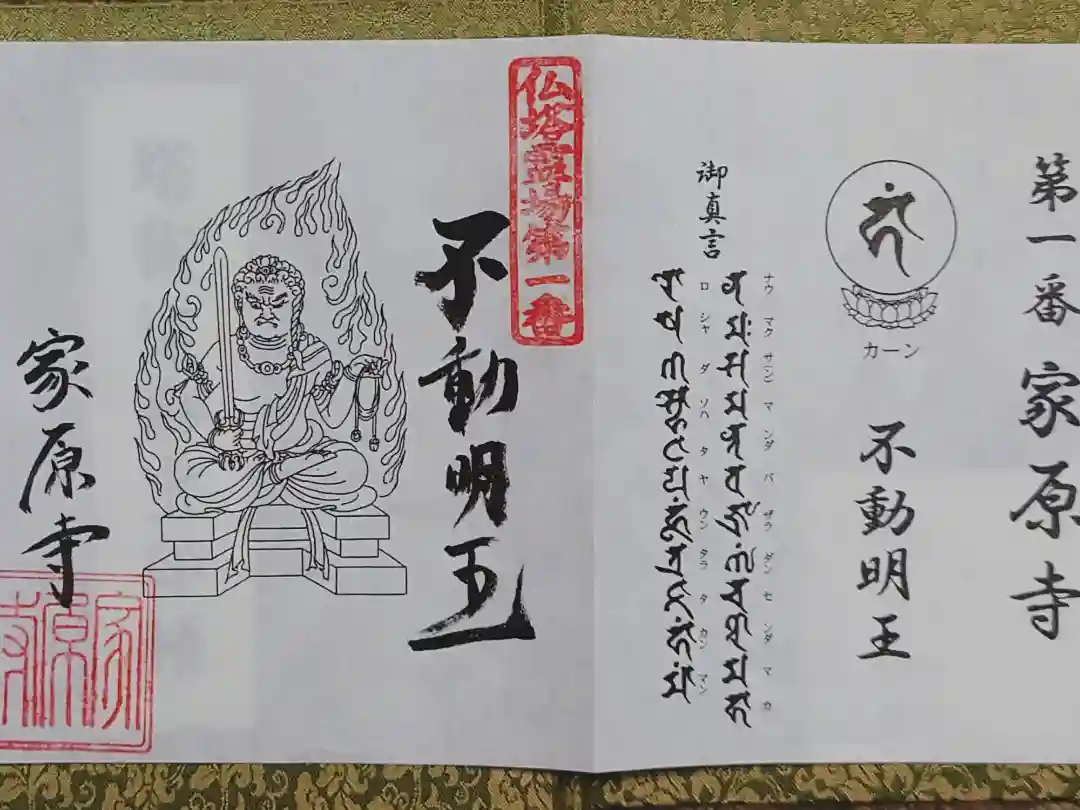 第一番 家原寺
カーン
不動明王
御真言
ナウ マク サン マ ンダ バ ザラ ダン セ ンダ マ カ
ロ シャ ダ ソハ タ ヤ ウン タラ タ カン マン
仏塔霊場第一番
不動明王
家原寺
家原寺